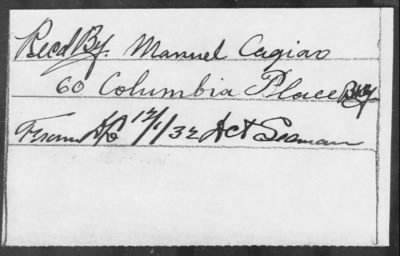 Recd By. Manuel Cagiao
60 Columbia Place Bkly
From 12/1/32 Act Seaman